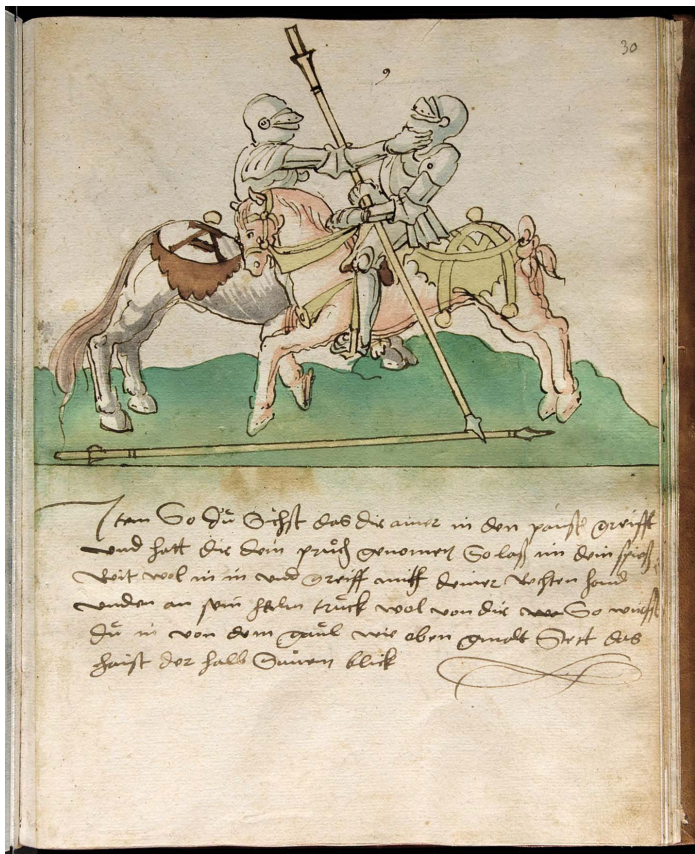 30
9
Item So du Sichst das dir ainer in den spiess greifft
und hatt dir dein pruch genomen So lass im dein spiess
Reit wol in in und greiff mitt deiner Rechten hand
unden an sein helm truck wol von dir So wirfst
du in von dem gaul wie oben gmalt Stett das
haist der halb Sauren blick